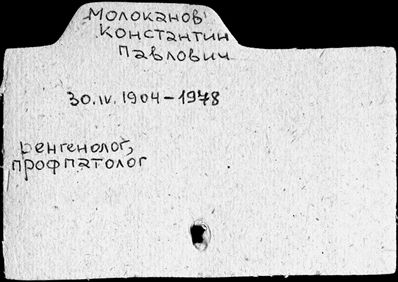 Молоканов
Константин
Павлович
30.IV.1904-1978
ренгенолог,
профпатолог